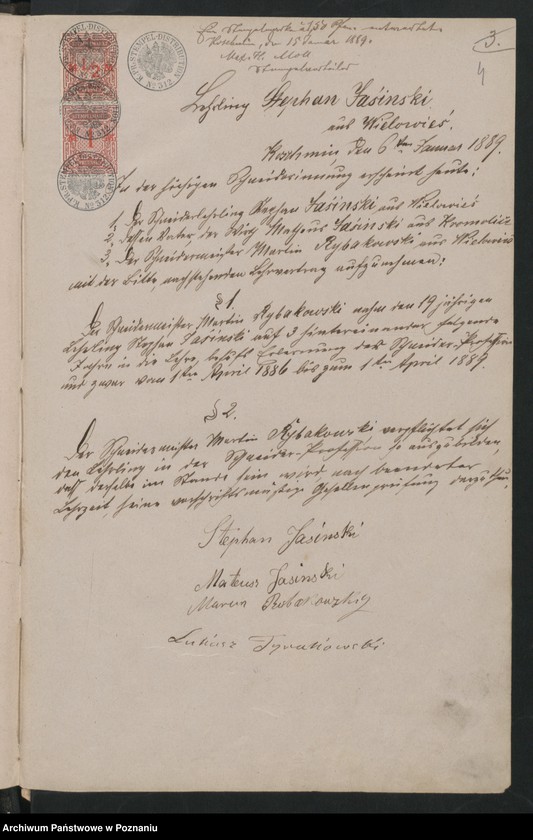 Ein Stempelmarke à 1,50 Pfen. entwerthet.
Koschmin, den 15 Januar 1889.
Stempelvertheiler
3.
4
K. PR. STEMPEL-DISTRIBUTION
No 312
Lehrling Stephan Jasinski
aus Wielowieś.
Koschmin den 6ten Januar 1889.
In der hiesigen Schneiderinnung erscheint heute:
1. Der Schneiderlehrling Stephan Jasiński aus Wielowieś
2. dessen Vater der Wirth Matheus Jasiński aus
3. Der Schneidermeister Martin Rybakowski aus Wielowieś
mit der Bitte, nachstehenden Lehrvertrag aufzunehmen:
§ 1.
Der Schneidermeister Martin Rybakowski nahm den 19 jährigen
Lehrling Stephan Jasinski auf 3 hintereinander folgende
Jahre in die Lehre, behufs Erlernung der Schneider-Profession
und zwar vom 1ten April 1886 bis zum 1ten April 1889.
§ 2.
Der Schneidermeister Martin Rybakowski verpflichtet sich
den Lehrling in der Schneider-Profession so auszubilden,
daß derselbe im Stande sein wird nach beendeter
Lehrzeit, seine vorschriftsmäßige Gesellenprüfung
Stephan Jasinski
Mateusz Jasinski
Marcin
Łukasz
Archiwum Państwowe w Poznaniu